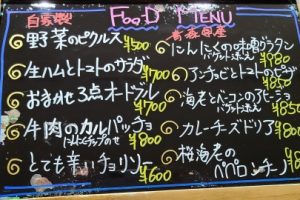 自家製
FooD MENU
野菜のピクルス ¥500
生ハムとトマトのサラダ ¥700
おまかせ3点オードブル ¥700
牛肉のカルパッチョ
にんにくチップのせ ¥800
とても辛いチョリソー ¥600
青森県産
にんにくの味噌グラタン
バゲット付 ¥980
アンチョビとトマトのピ
海老とベーコンのアヒージョ
バゲット付 ¥850
カレーチーズドリア ¥80
桜海老の
ペペロンチーノ